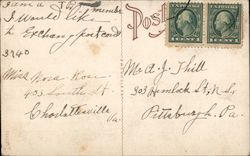 I am a
I would like
to Exchange postcard
3740
Miss Rosa Rose
403 South St
Charlottesville
Va.
Post
Mr A. J. Thill
303 Hemlock St. N.S.
Pittsburgh. Pa.